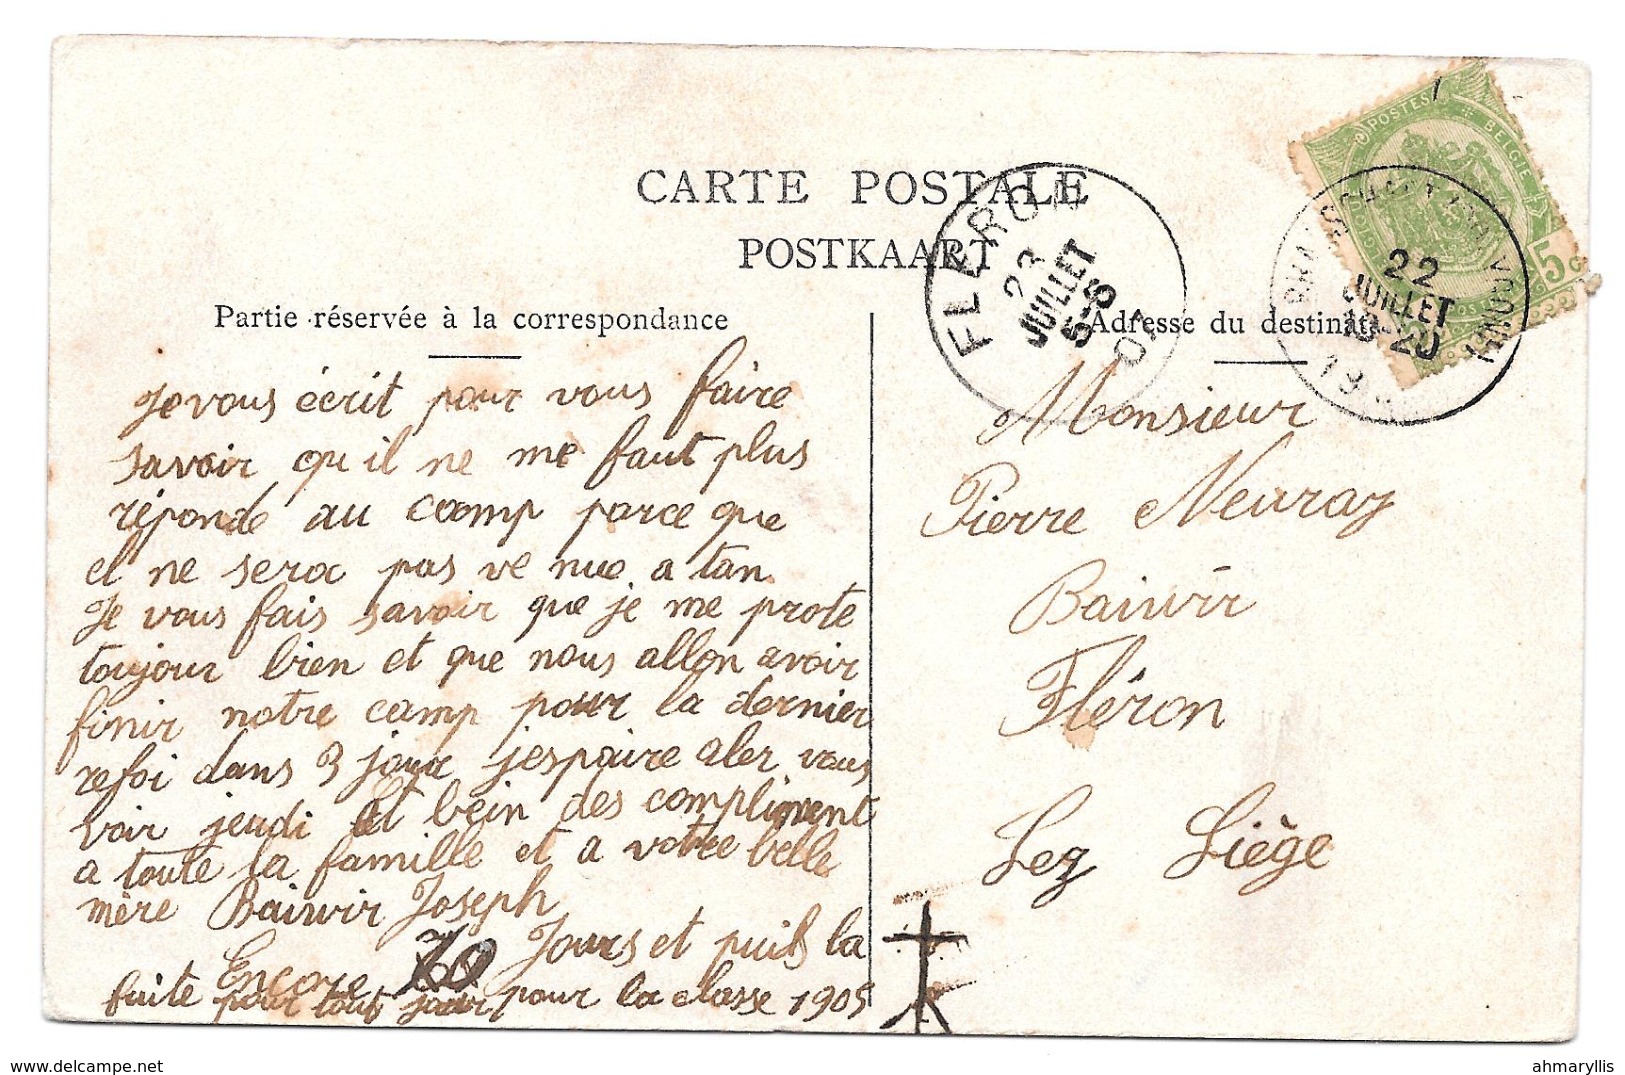 CARTE POSTALE
POSTKAART
Partie réservée à la correspondance
Adresse du destinata
POSTES BELGIQUE
5c
FLERON
23
JUILLET
5-S
07
22
JUILLET
19-20
19
Je vous écrit pour vous faire
savoir qu il ne me faut plus
réponde au coomp parce que
el ne sera pas ve nue a tan
Je vous fais savoir que je me prote
toujour bien et que nous allon avoir
finir notre camp pour la dernier
refoi dans 3 jour jespaire aler vous
voir jeudi Et bein des compliment
a toute la famille et a votre belle
mère Baiwir Joseph
Encore 70 Jours et puis la
fuite pour tout jour pour la classe 1905
Monsieur
Pierre Neuray
Baiwir
Fléron
Lez Liège
ahmaryllis